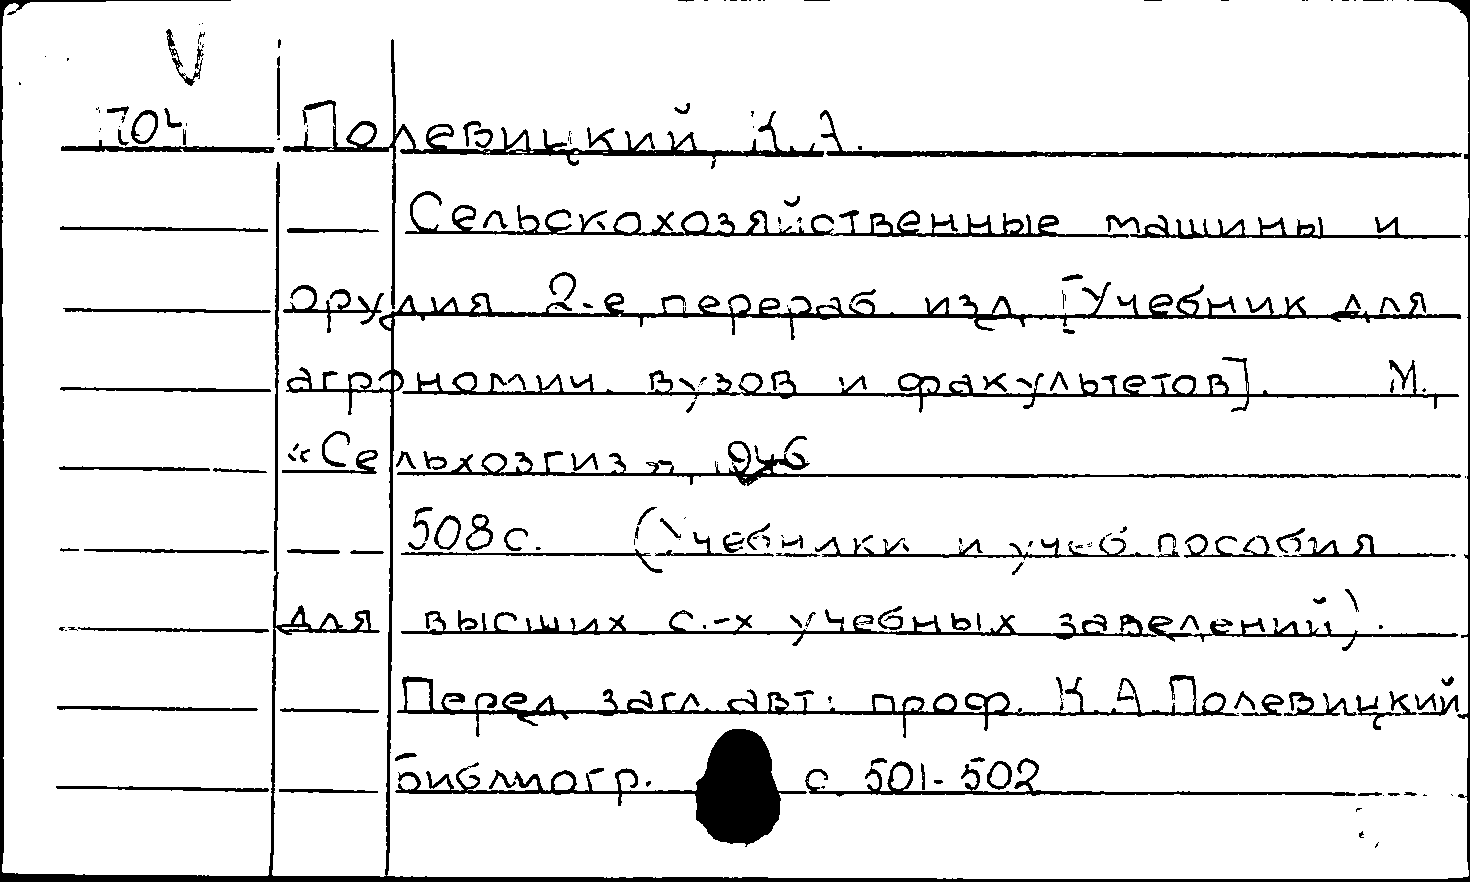 V
1704 Полевицкий, К.А.
Сельскохозяйственные машины и
орудия 2-е, перераб. изд. [Учебник для
агрономич. вузов и факультетов]. М.,
«Сельхозгиз», 1946
508 с. (Учебники и учеб. пособия
для высших с.-х учебных заведений).
Перед загл. авт: проф. К.А.Полевицкий
библиогр. с. 501-502